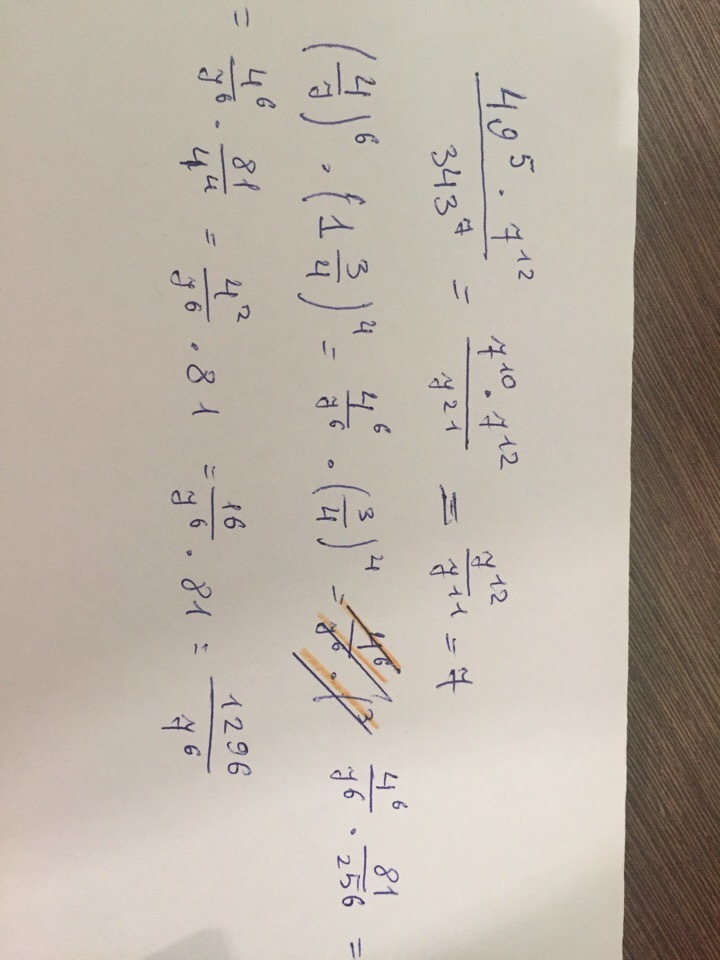 49⁵ · 7¹² / 343⁷ = 7¹⁰ · 7¹² / 7²¹ = 7¹² / 7¹¹ = 7
(4/7)⁶ · (1 3/4)⁴ = 4⁶/7⁶ · (3/4)⁴ = 4⁶/7⁶ · (3 4⁶/7⁶ · 81/256 =
= 4⁶/7⁶ · 81/4⁴ = 4²/7⁶ · 81 = 16/7⁶ · 81 = 1296/7⁶